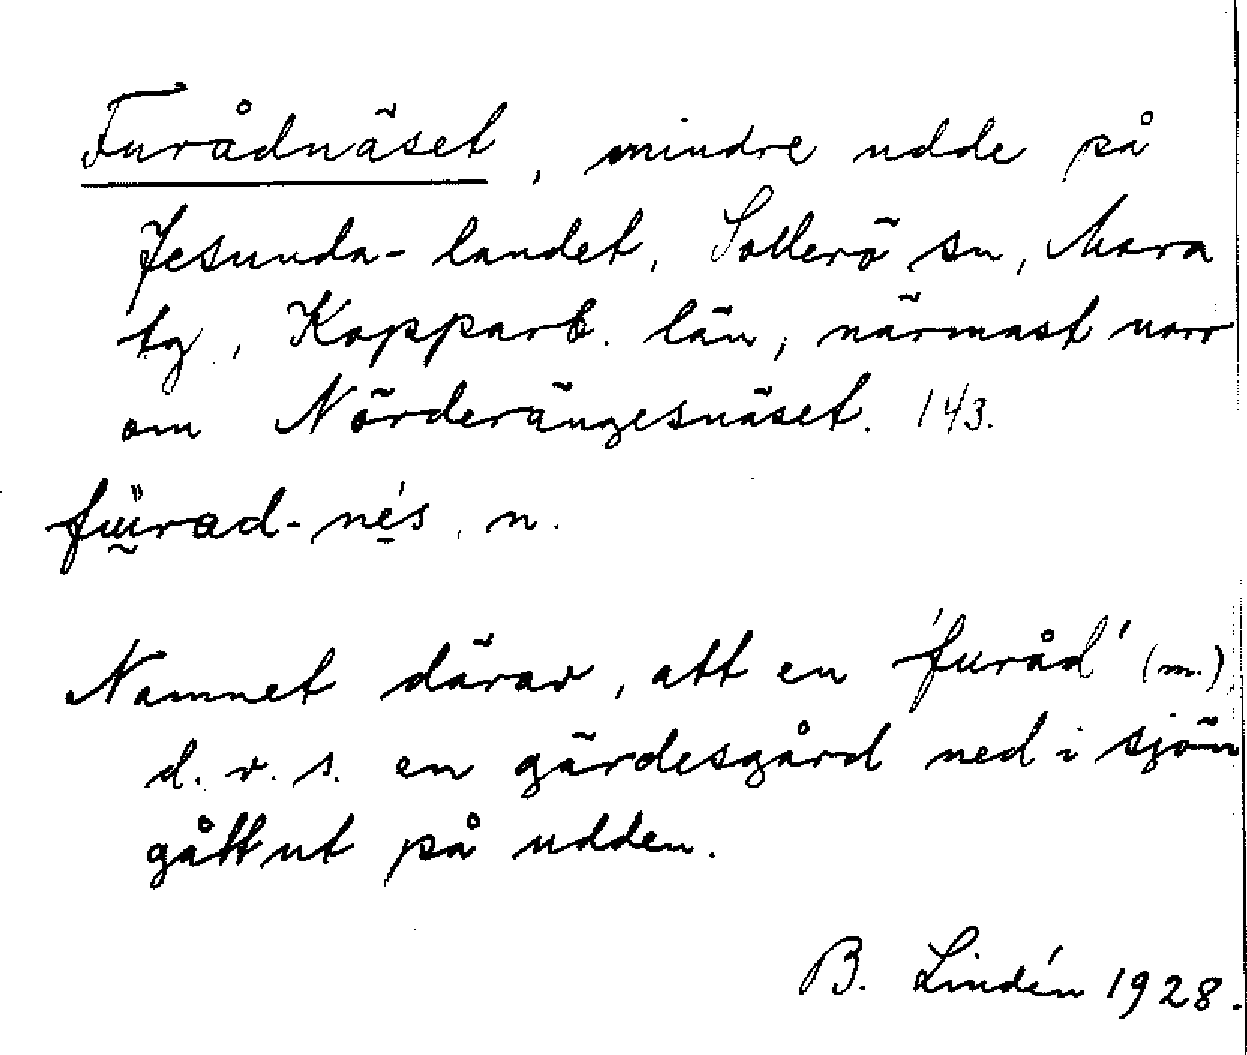 Furådnäset, mindre udde på
Jesunda-landet, Sollerö sn, Mora
tg., Kopparb. län, närmast norr
om Nörderängesnäset. 143.
fụ̈rad-nés, n.
Namnet därav, att en 'furåd' (m.),
d. v. s. en gärdesgård ned i sjön
gått ut på udden.
B. Lindén 1928.